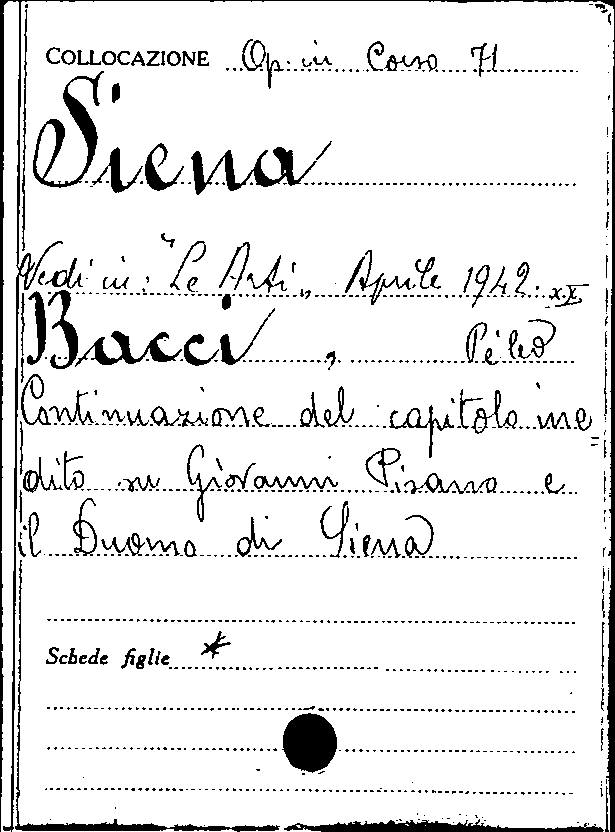 COLLOCAZIONE Op. in Corso 71
Siena
Vedi in: "Le Arti„ Aprile 1942. XX
Bacci , Pèleo
Continuazione del capitolo ine=
dito su Giovanni Pisano e
il Duomo di Siena
Schede figlie *